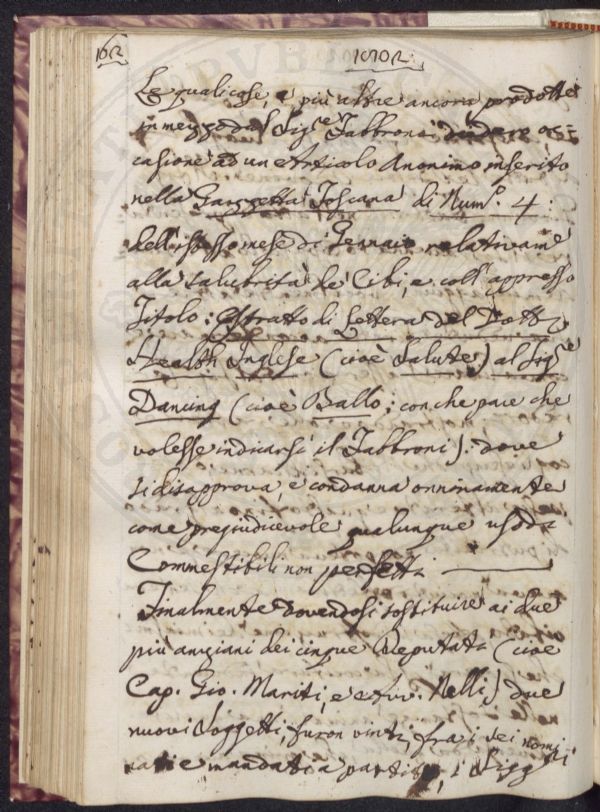 162
Le quali cose, e più altre ancora prodotte
in mezzo dal Sig.re Fabbroni diedero oc=
casione ad un Articolo Anonimo inserito
nella Gazzetta Toscana di Num.o 4:
dell'istesso mese di Gennaio relativam.e
alla salubrità de' Cibi, e coll' appresso
Titolo: Estratto di Lettera del Dott.
Health Inglese (cioè Salute) al Sig.re
Dancing (cioè Ballo; con che pare che
volesse indicarsi il Fabbroni): dove
si disapprova, e condanna onninamente
come pregiudicevole qualunque uso di
Commestibili non perfetti
Finalmente dovendosi sostituire ai due
più anziani dei cinque Deputati (cioè
Cap. Gio. Mariti, e Avv. Nelli) due
nuovi Soggetti, furon vinti, fra i sei nomi
nati e mandati a partito, i Sigg.ri